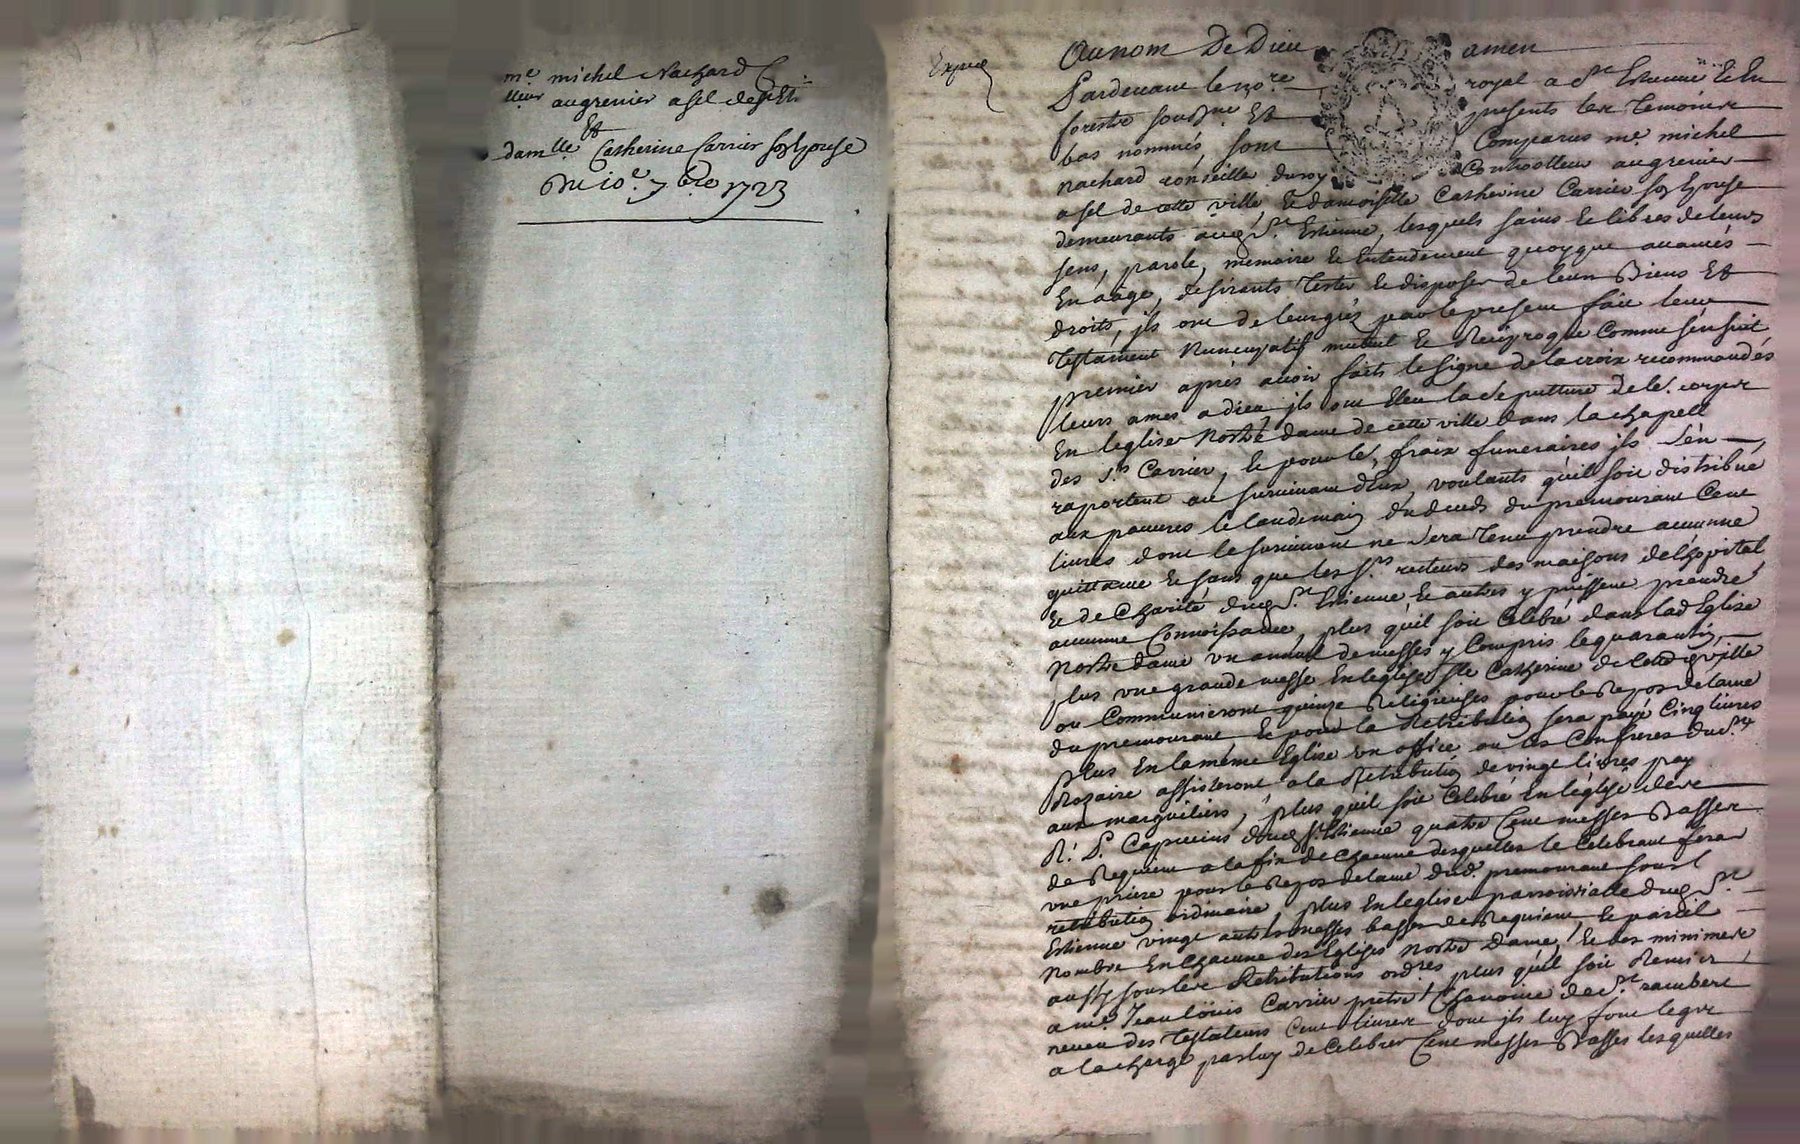 me michel Nachard C
lleur au grenier a sel de st Eti
Et
damlle Catherine Carrier son Epouse
Du 10e 7bre 1723
Expié
Au nom De Dieu amen
Pardevant le no.re royal a St Estienne Et En
forestz sousne Et presents les Temoins
bas nommés sont Comparus me. michel
Nachard conseille du roy Controlleur au grenier
a sel de cette ville Et damoiselle Catherine Carrier son Epouse
demeurants aud St. Estienne, lesquels sains Et libres de leurs
sens, parole, memoire Et Entendement quoyque avancés
En aâge, desirants Tester Et disposer de leurs Biens Et
droits, ils ont de leur gréz par le present fait leur
Testament Nuncupatif mutuel Et Reciproque Comme s'ensuit
premier aprés avoir faits le signe de la croix recommandés
leurs ames a dieu, ils ont Eleu la sepulture de le. corps
En leglise Nostre dame de cette ville dans la chapell
des srs Carrier, Et pour les fraix funeraires ils s'en
raportent au survivant d'Eux, voulants qu'il soit distribué
aux pauvres le landemain du deceds du premourant Cent
livres dont le survivant ne sera Tenu prendre aucunne
quittance Et sans que les srs. recteurs des maisons de l'hopital
Et de Charité dud St. Estienne Et autres y puissent prendre
aucunne Connoissance, plus qu'il soit Celebré dans lad Eglise
Nostre dame un annuel de messes y Compris le quarantin,
plus une grande messe En leglise Ste Catherine de cettedt ville
ou Communieront quinze Religieuses pour le Repos de lame
du premourant Et pour la Retribution sera payé Cinq livres
plus En la même Eglise un office ou les Confreres du St
Rozaire assisteront a la Retribution de vingt livres pay
aux marguiliers, plus qu'il soit Celebré En leglise des
R. P. Capucins dud St Estienne quatre Cent messes Basses
de Requiem a la fin de chacune desquelles le Celebrant fera
une priere pour le Repos de lame dud. premourant sous l
retribution ordinaire, plus En leglise parroissialle dud St.
Estienne vingt autres messes basses de Requiem, Et pareil
Nombre En chacune des Eglises Nostre Dame, Et des minimes
aussy sous les Retributions ord.res plus qu'il soit Remis
a me. Jean loüis Carrier pretre Chanoine de St. rambert
neveu des Testateurs Cent livres dont ils luy font legs
a la charge par luy de Celebrer Cent messes Basses lesquelles